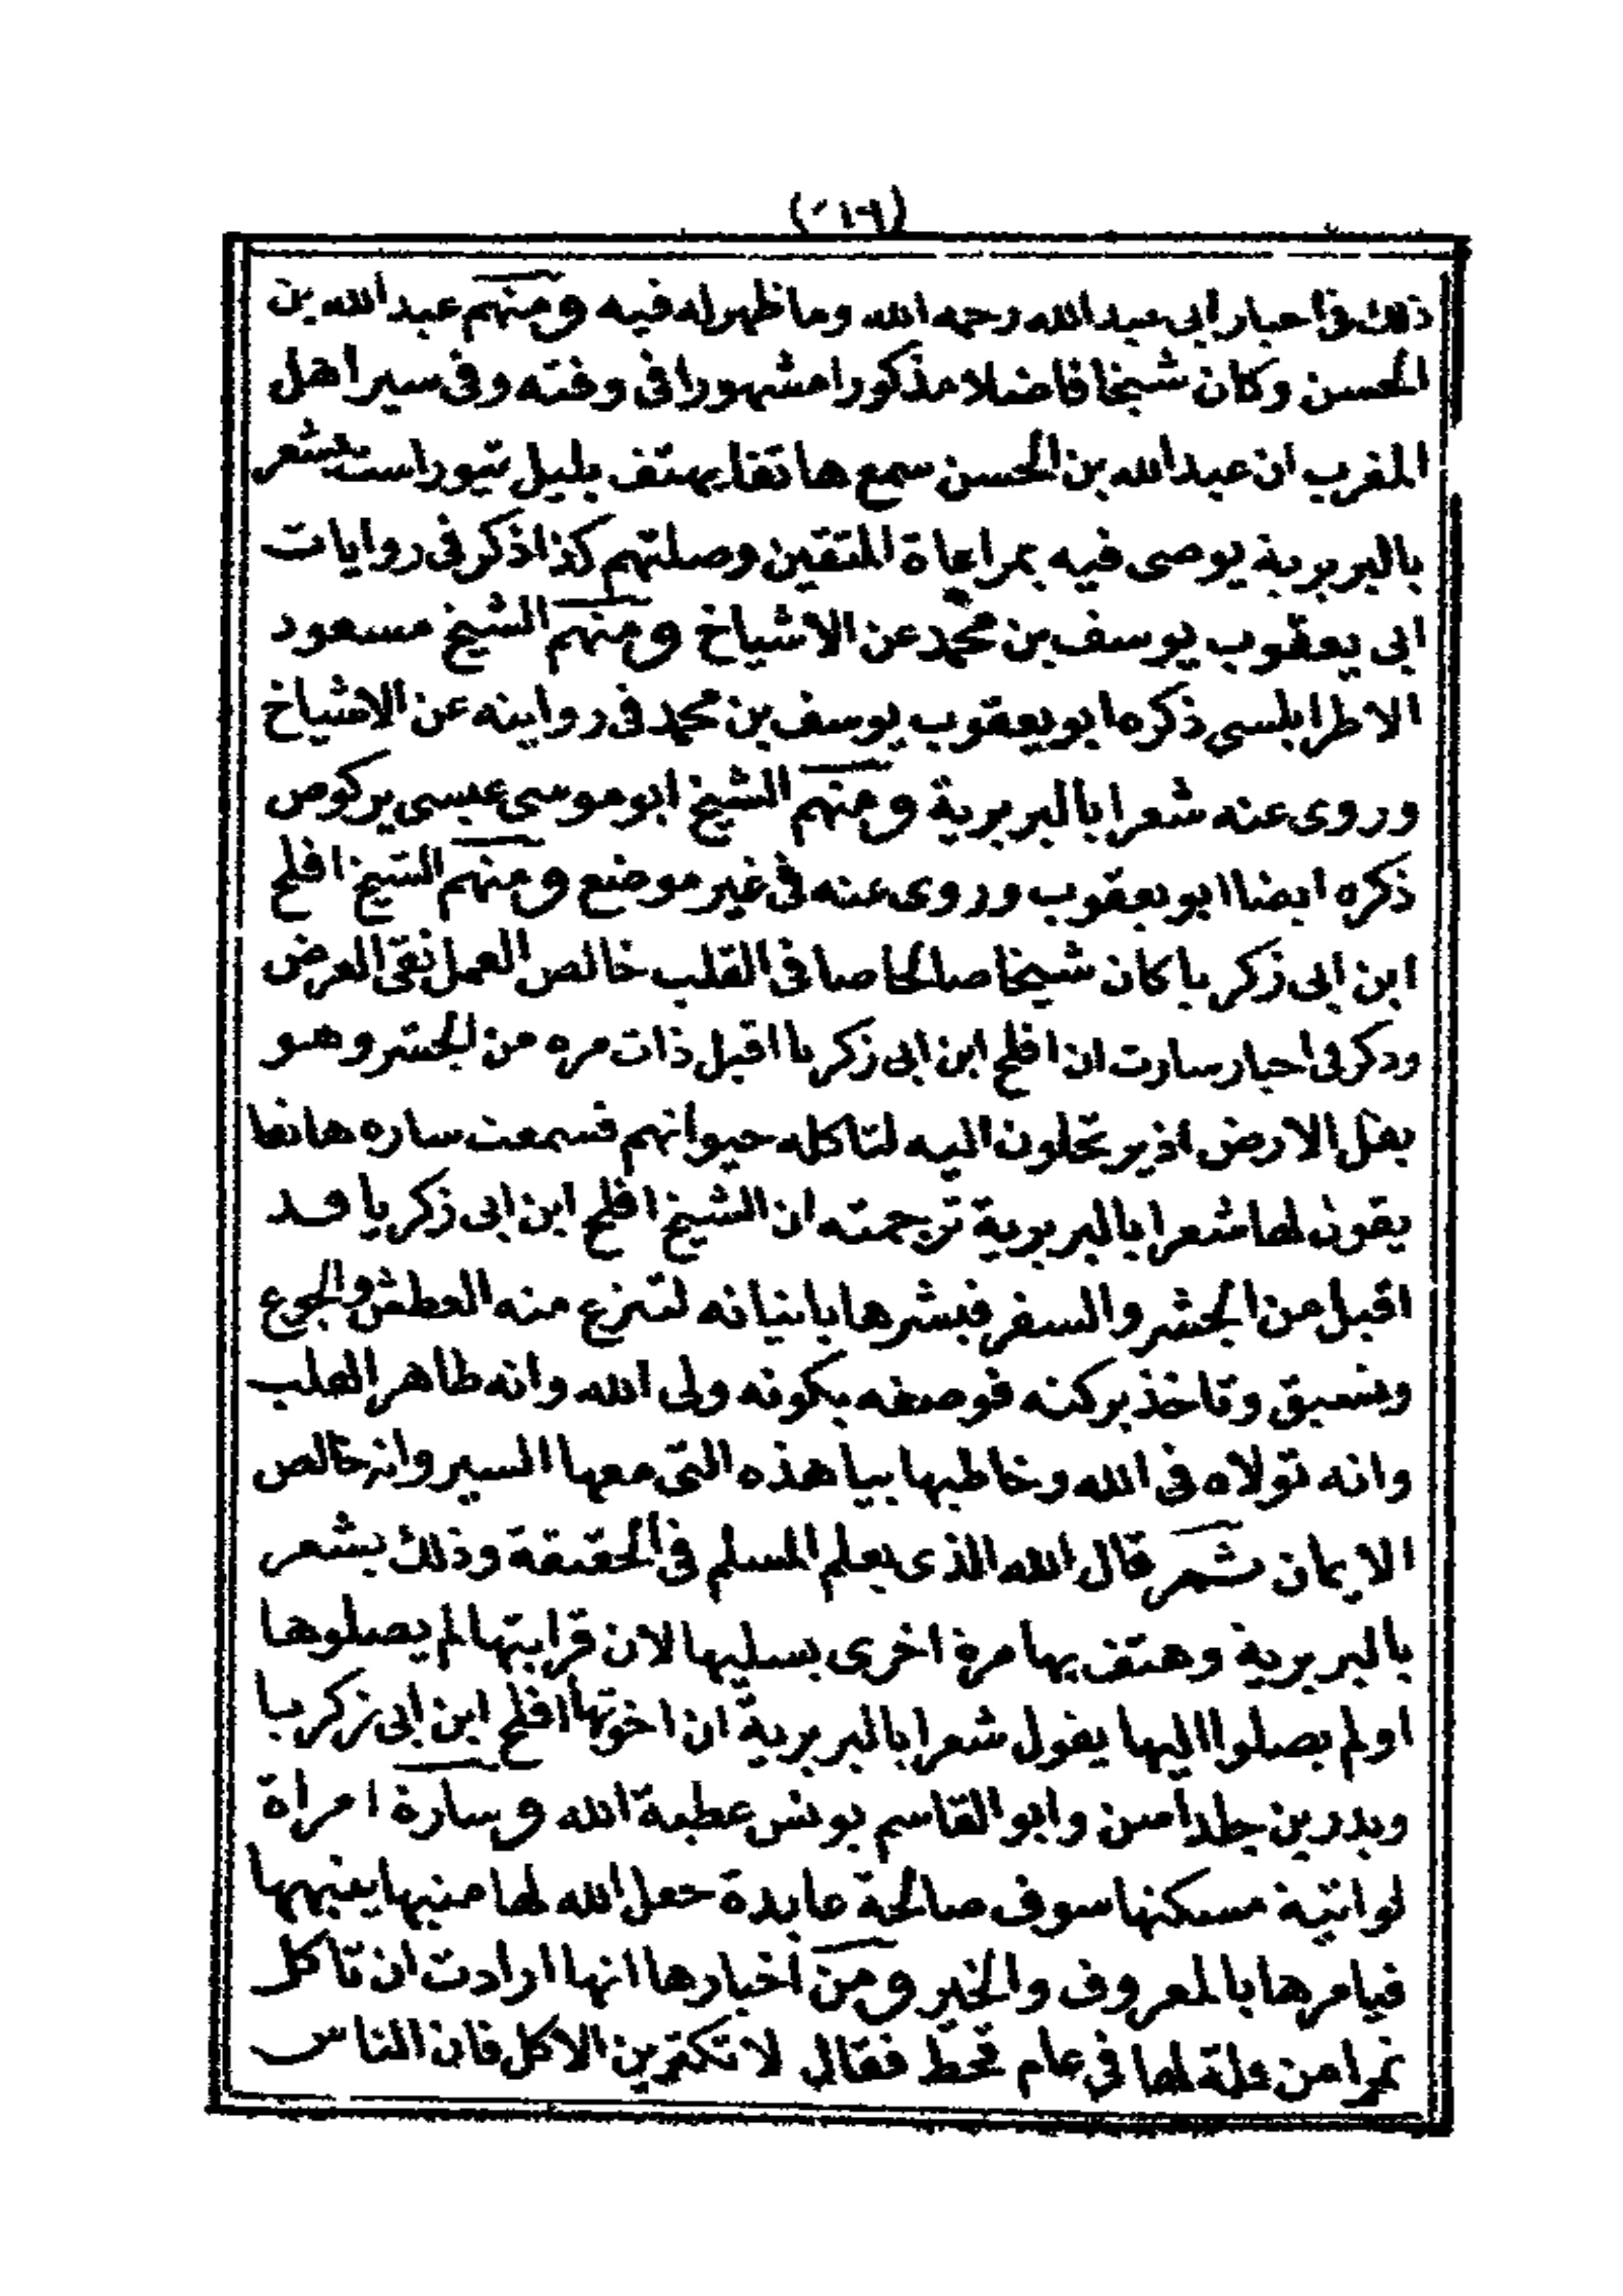 ذلك فى اخبار ابى عبد الله رحمه الله وما ظهر له فيه ومنهم عبد الله بن
الحسن وكان شيخا فاضلا مذكورا مشهورا فى وقته وفى سير اهل
المغرب ان عبد الله بن الحسن سمع هاتفا يهتف بليل تيوراست بشعر
بالبربرية يوصى فيه بمراعاة المتقين وصلتهم كذا ذكر فى روايات
ابى يعقوب يوسف بن محمد عن الاشياخ ومنهم الشيخ مسعود
الاطرابلسى ذكره ابو يعقوب يوسف بن محمد فى روايته عن الاشياخ
وروى عنه شعرا بالبربرية ومنهم الشيخ ابو موسى عيسى يركوص
ذكره ايضا ابو يعقوب وروى عنه فى غير موضع ومنهم الشيخ افلح
ابن ابى زكريا كان شيخا صالحا صافى القلب خالص العمل نقى العرض
وذكر فى اخبار سارت ان افلح ابن ابى زكريا اقبل ذات مره من الجشر وهو
بقل الارض اذ يرتحلون اليه لتاكله حيوانهم فسمعت ساره هاتفا
يقول لها شعرا بالبربرية ترجمته ان الشيخ افلح ابن ابى زكريا قد
اقبل من الجشر والسفر فبشرها باتيانه لتنزع منه العطش والجوع
وتاخذ بركته فوصفه بكونه ولى الله وانه طاهر القلب
وانه تولاه فى الله وخاطبها بيا هذه التى معها السير وانه خالص
الايمان ثم قال الله الذى يعلم المسلم فى الحقيقة وذلك بشعر
بالبربرية وهتف بها مرة اخرى يسليها لان قرابتها لم يصلوها
او لم يصلوا اليها يقول شعرا بالبربرية ان اخوتها افلح ابن ابى زكريا
وبدرين جلدامن وابو القاسم يونس عطية الله وسارة امراة
لواتية مسكنها سوف صالحة عابدة جعل الله لها منبها ينبهها
فيامرها بالمعروف والخير ومن اخبارها انها ارادت ان تاكل
تمرا من قلة لها فى عام قحط فقال لا تكثرين الاكل فان الناس